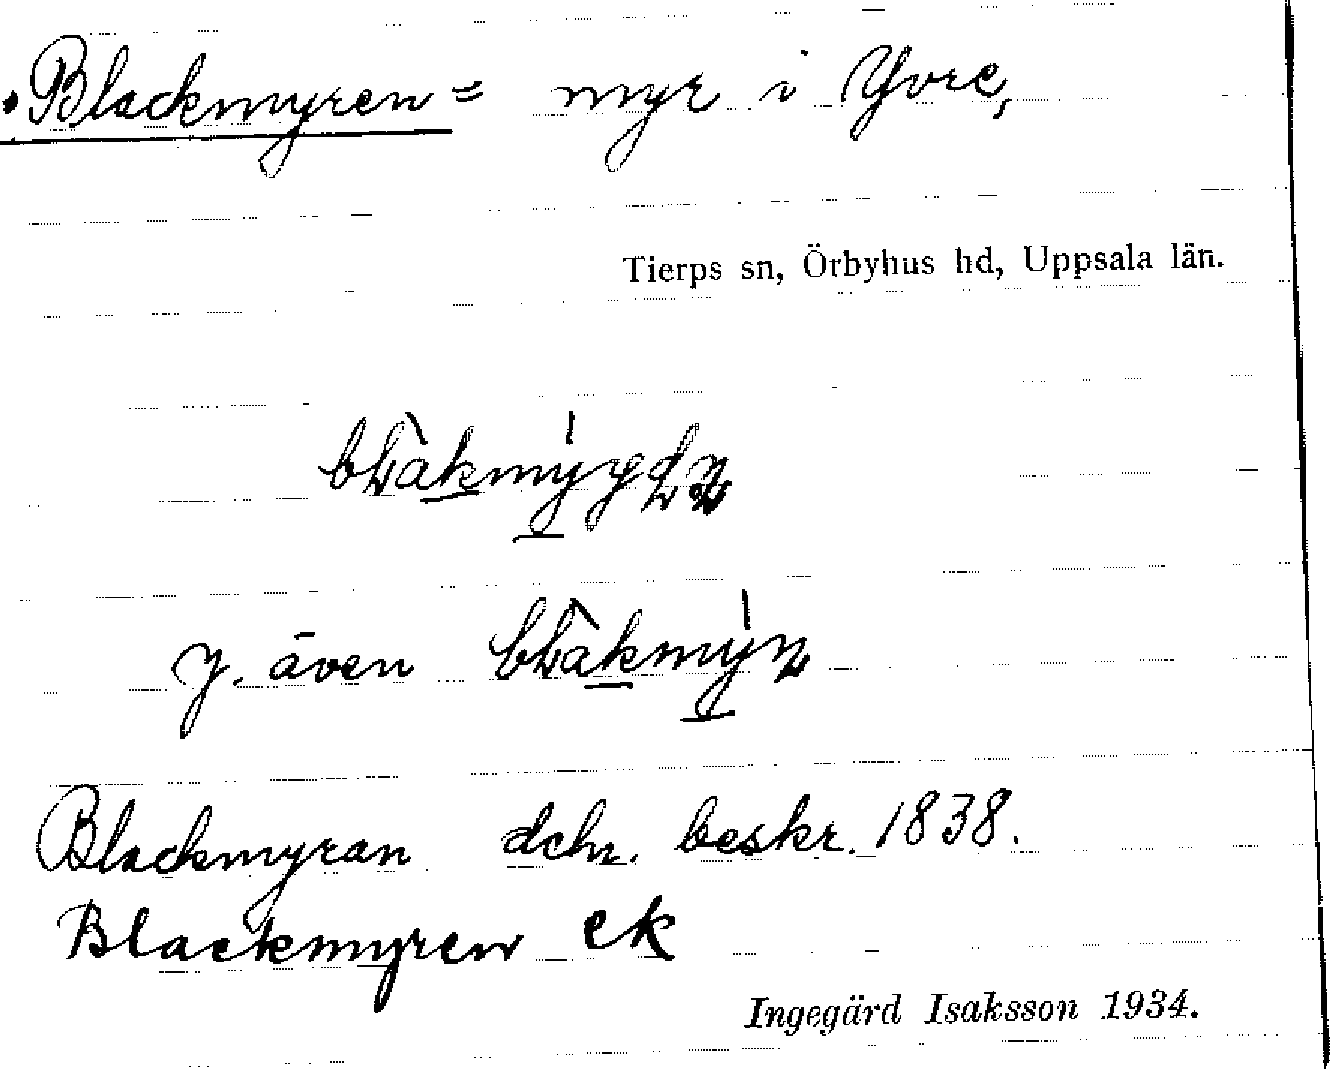 Blackmyren = myr i Yvre,
Tierps sn, Örbyhus hd, Uppsala län.
y. även
Blackmyran dchr. beskr. 1838.
Blackmyren ek
Ingegärd Isaksson 1934.